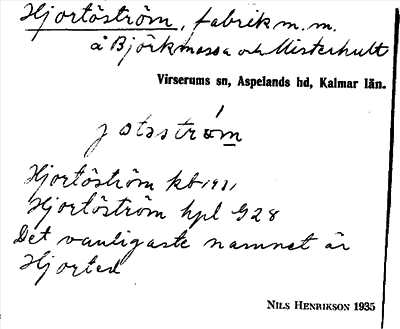 Hjortöström, fabrik m.m.
å Björkmossa och Misterhult
Virserums sn, Aspelands hd, Kalmar län.
Hjortöström kb 1911
Hjortöström hpl G28
Det vanligaste namnet är
Hjorted
NILS HENRIKSON 1935